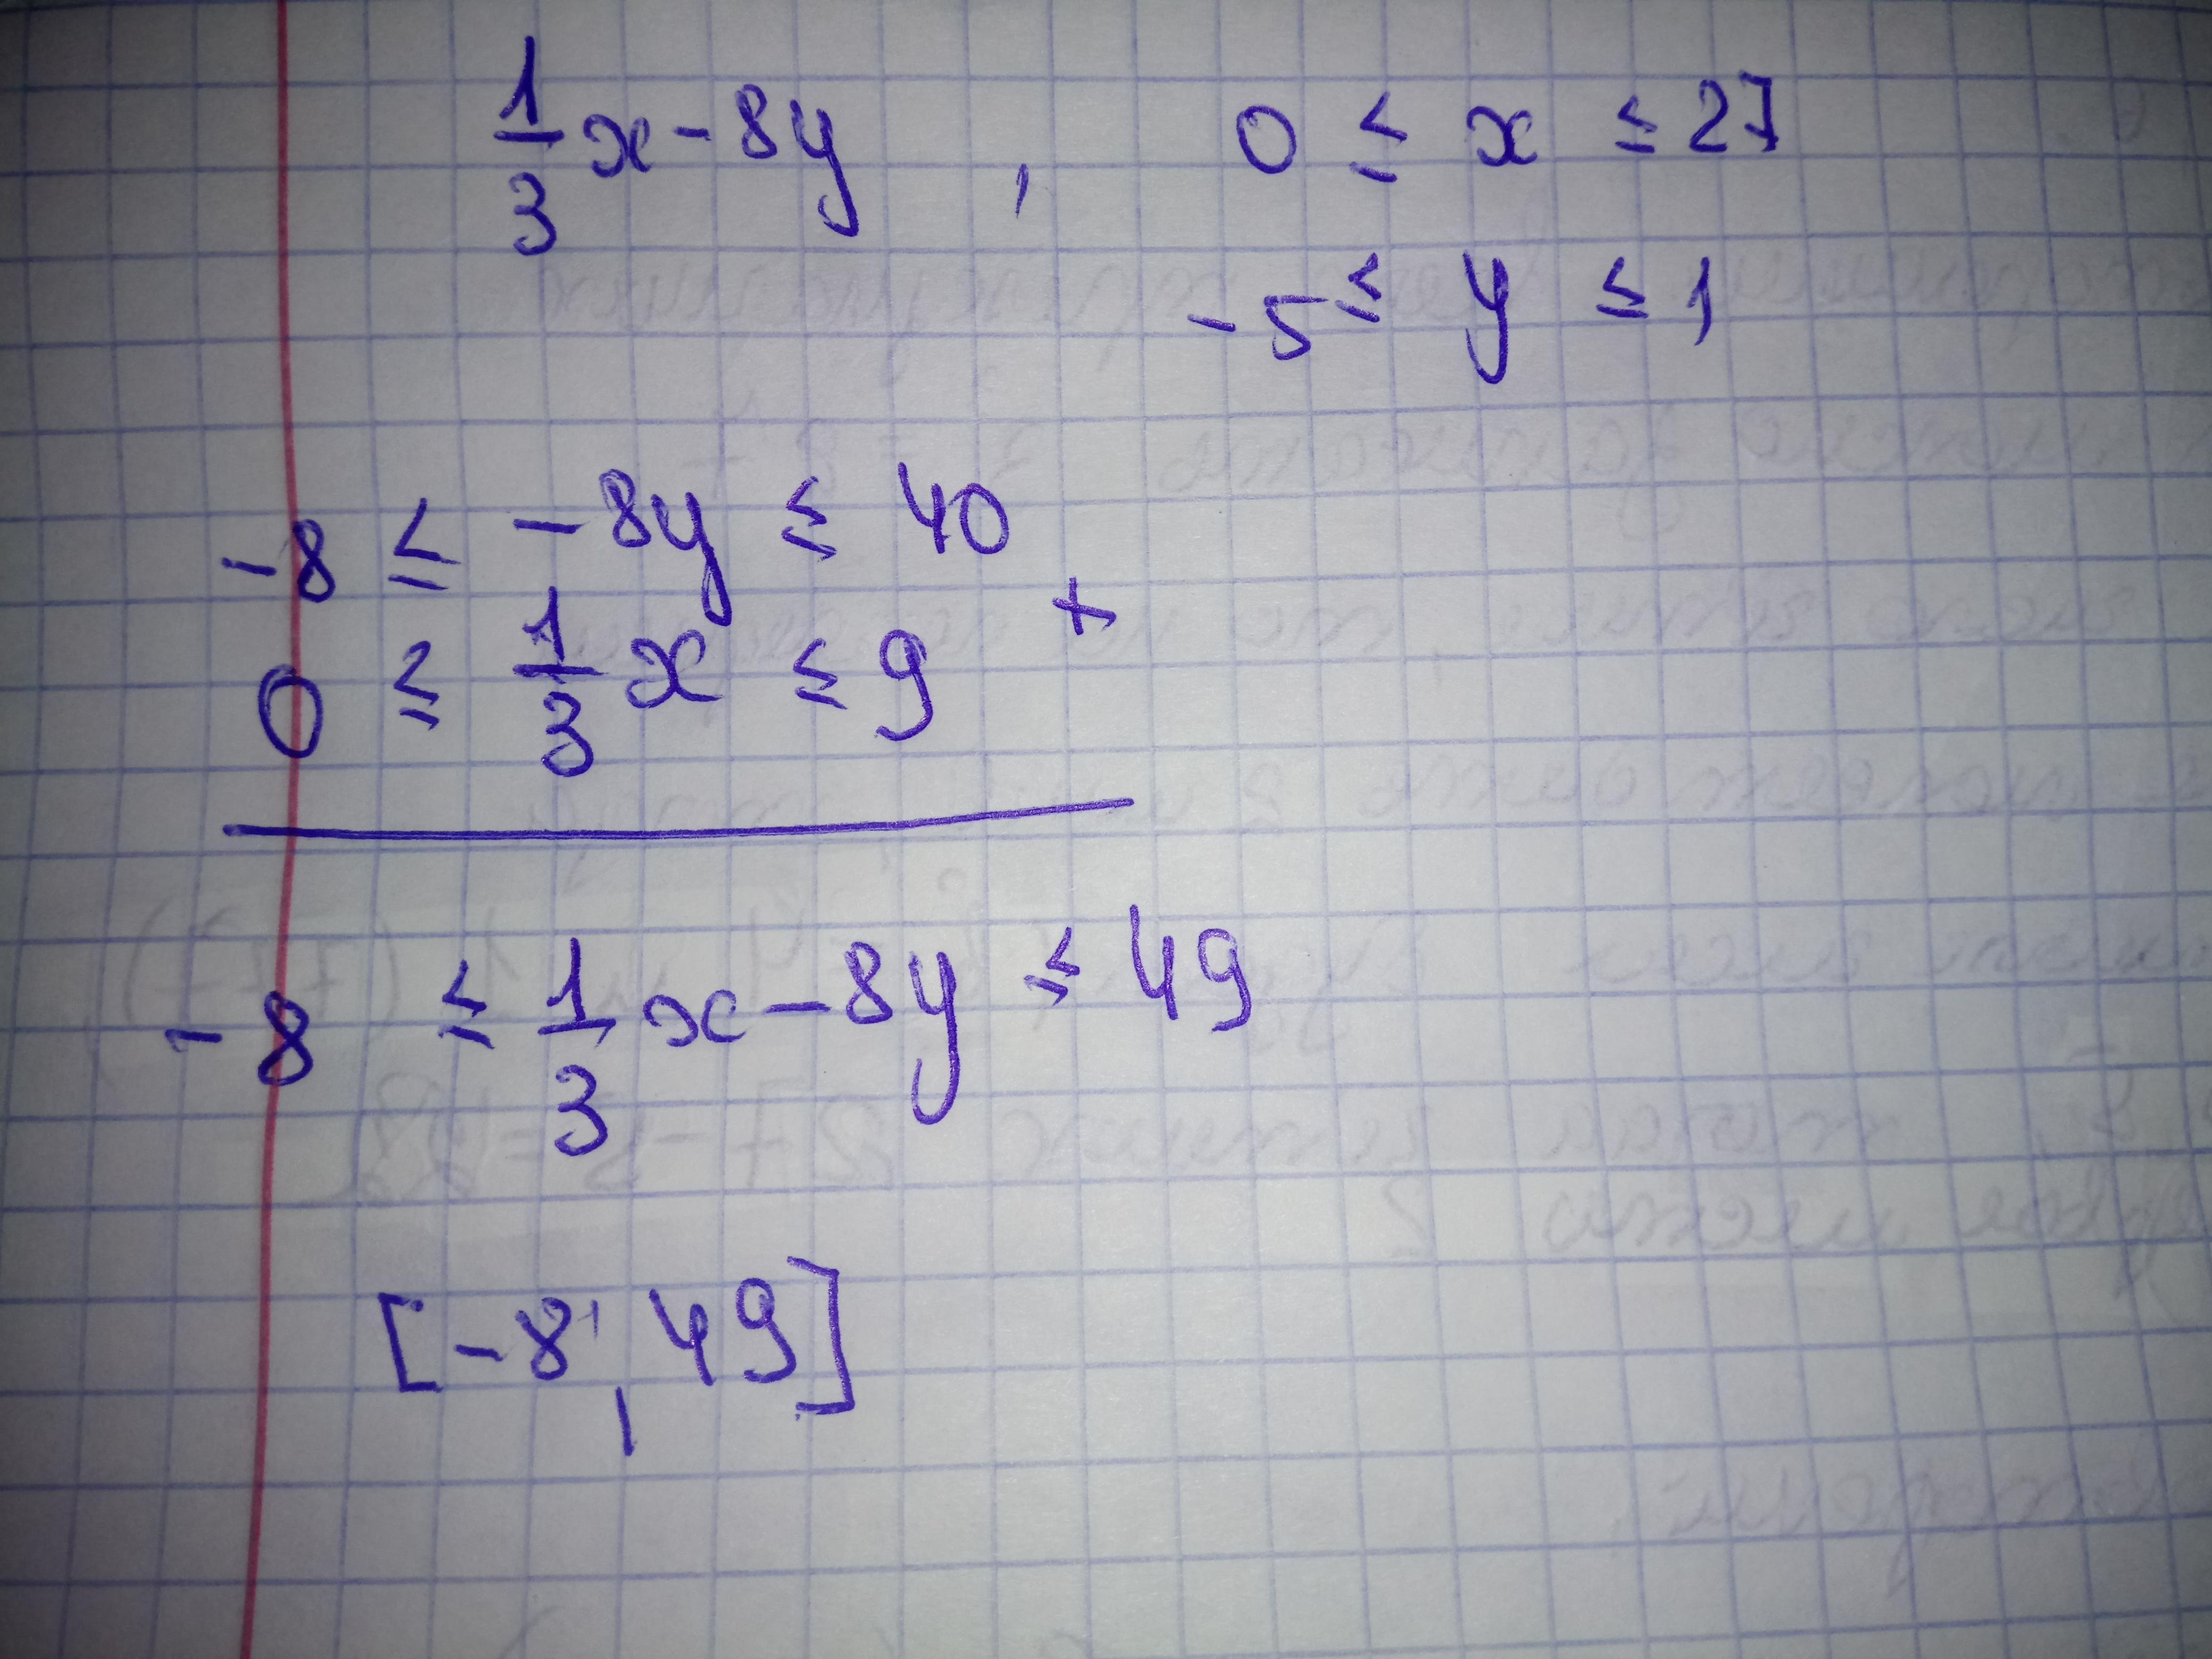 1/3 x - 8y , 0 ≤ x ≤ 27
-5 ≤ y ≤ 1
-8 ≤ -8y ≤ 40
+
0 ≤ 1/3 x ≤ 9
-8 ≤ 1/3 x - 8y ≤ 49
[-8, 49]